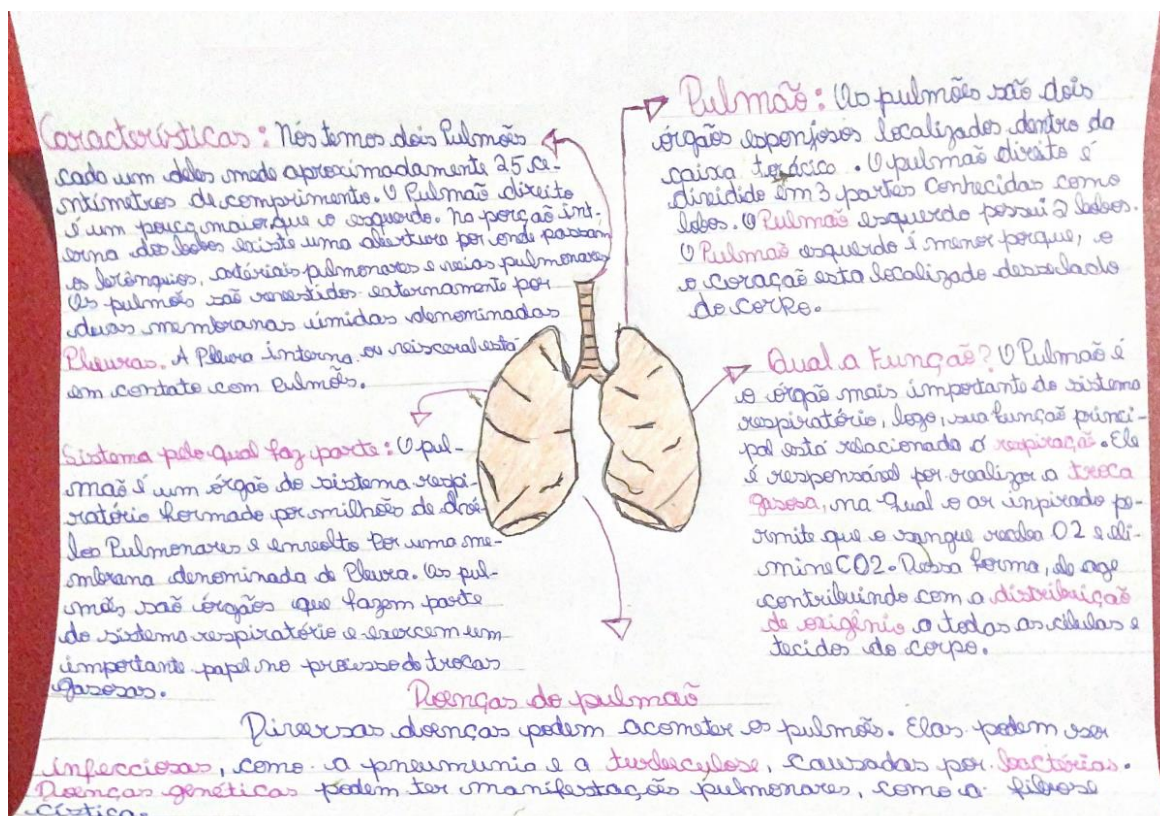 Características: Nós temos dois Pulmões
cada um deles mede aproximadamente 25 ce-
ntímetros de comprimento. O Pulmão direito
é um pouco maior que o esquerdo. Na porção int-
erna dos lobos existe uma abertura por onde passam
os brônquios, artériais pulmonares e veias pulmonares
Os pulmões são revestidos externamente por
duas membranas úmidas denominadas
Pleuras. A Pleura interna ou visceral está
em contato com Pulmões.
Sistema pelo qual faz parte: O pul-
mão é um órgão do sistema respi-
ratório formado por milhões de alvé-
los Pulmonares e envolto por uma me-
mbrana denominada de Pleura. Os pul-
mões são órgãos que fazem parte
do sistema respiratório e exercem um
importante papel no processo de trocas
gasosas.
Pulmão: Os pulmões são dois
órgãos esponjosos localizados dentro da
caixa torácica. O pulmão direito é
dividido em 3 partes conhecidas como
lobos. O Pulmão esquerdo possui 2 lobos.
O Pulmão esquerdo é menor porque, o
o coração esta localizado desse lado
do corpo.
Qual a Função? O Pulmão é
o órgão mais importante do sistema
respiratório, logo, sua função princi-
pal está relacionado a respiração. Ele
é responsável por realizar a troca
gasosa, na qual o ar inpirado pe-
rmite que o sangue receba O2 e eli-
mine CO2. Dessa forma, ele age
contribuindo com a distribuição
de oxigênio a todas as células e
tecidos do corpo.
Doenças do pulmão
Diversas doenças podem acometer os pulmões. Elas podem ser
infecciosas, como a pneumunia e a tuberculose, causadas por bactérias.
Doenças genéticas podem ter manifestações pulmonares, como a fibrose
cística.